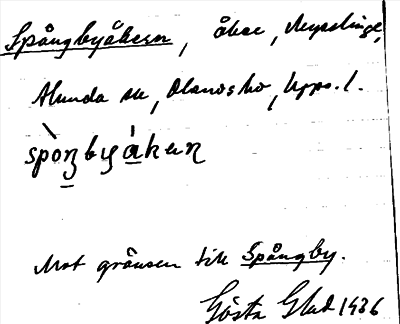 Spångbyåkern, åker, Myrslinge,
Alunda sn, Olands hd, Upps. l.
spòŋbyákeɳ
Mot gränsen till Spångby.
Gösta Glad 1936